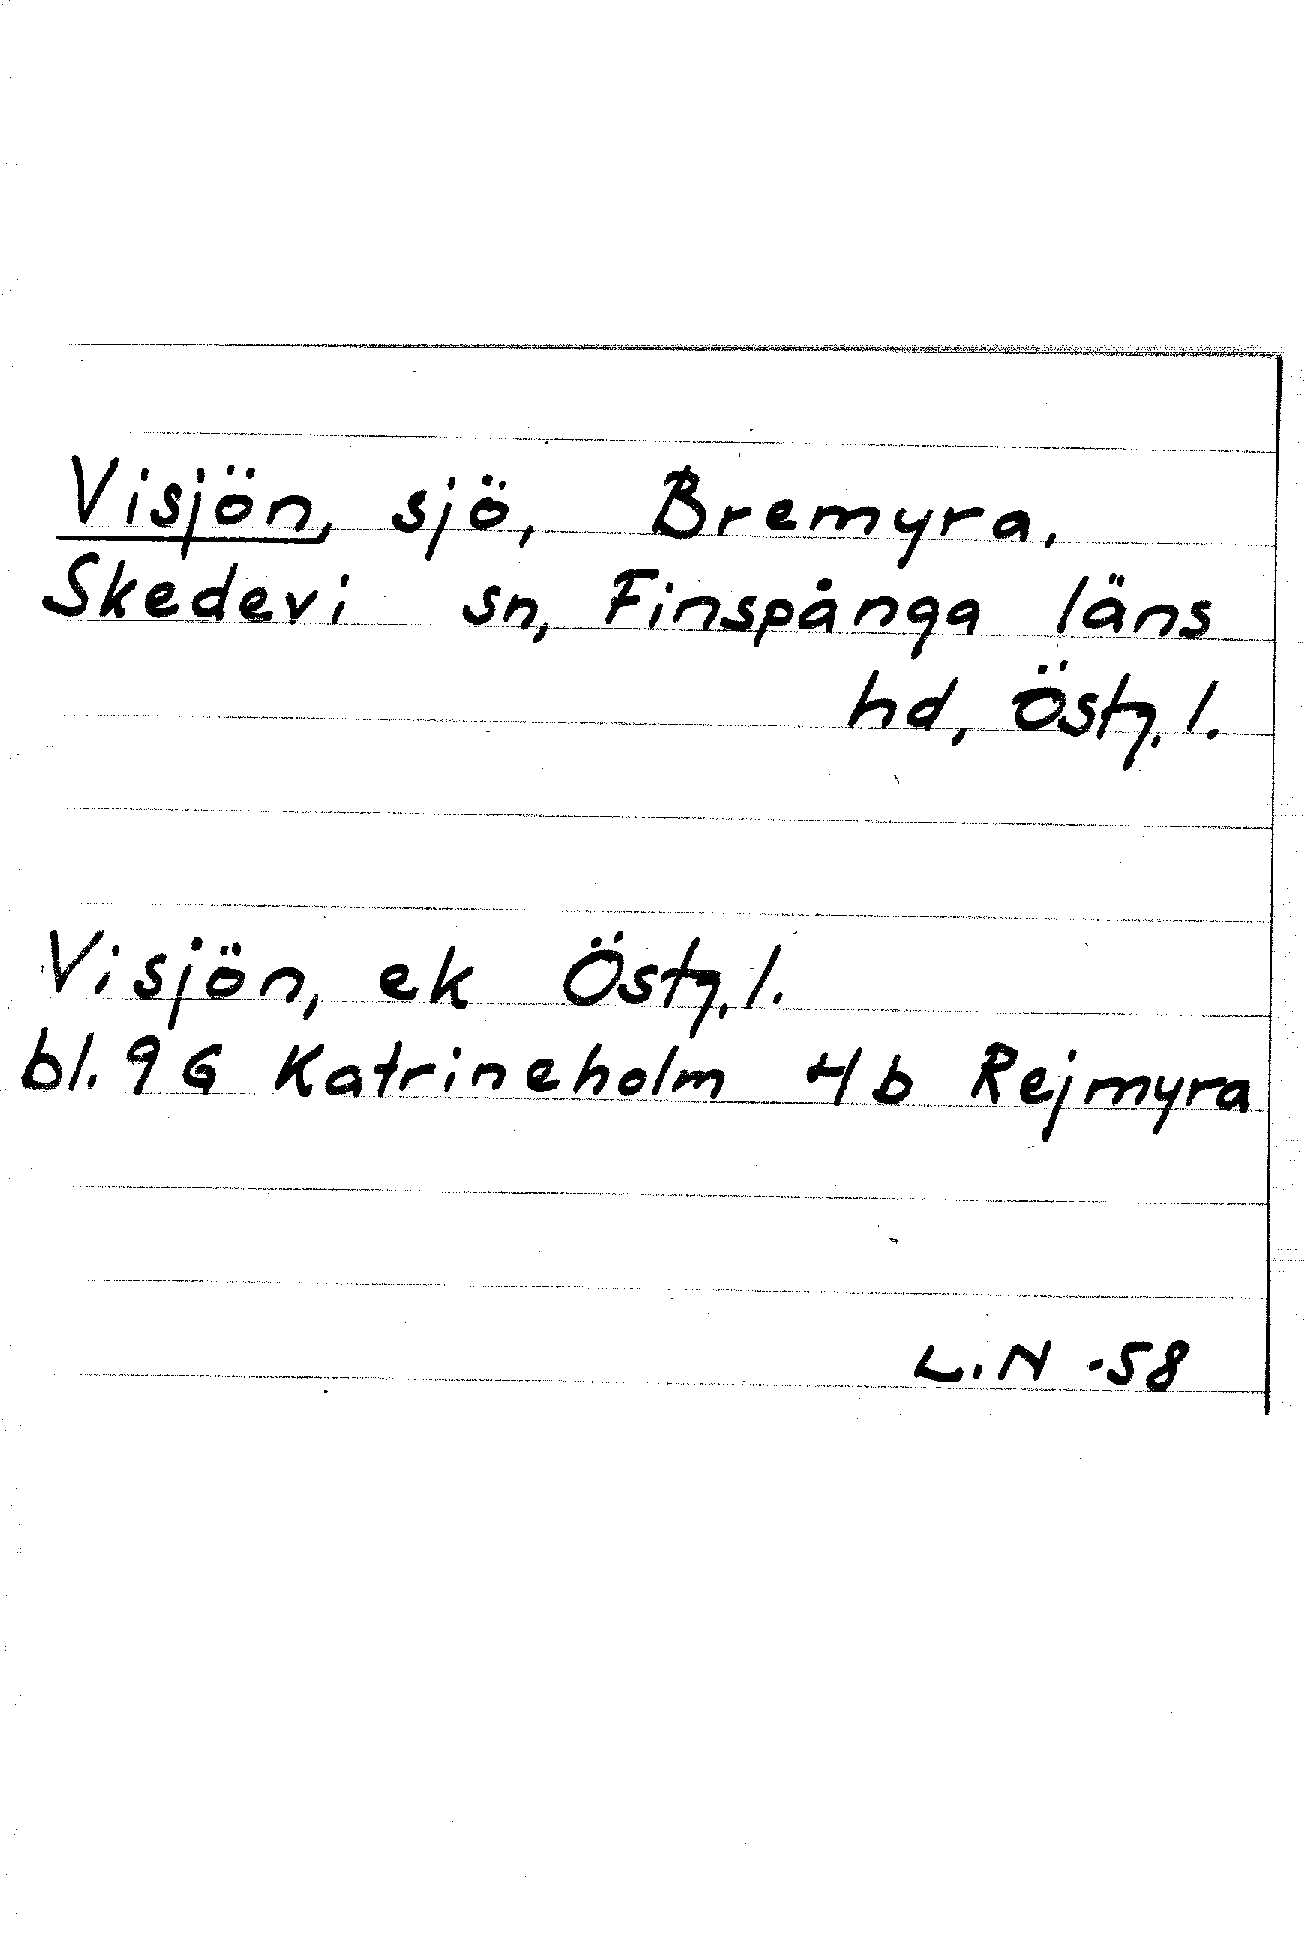 Visjön, sjö, Bremyra,
Skedevi sn, Finspånga läns
hd, Östg. l.
Visjön, ek Östg. l.
bl. 9 G Katrineholm 4 b Rejmyra
L.N -58